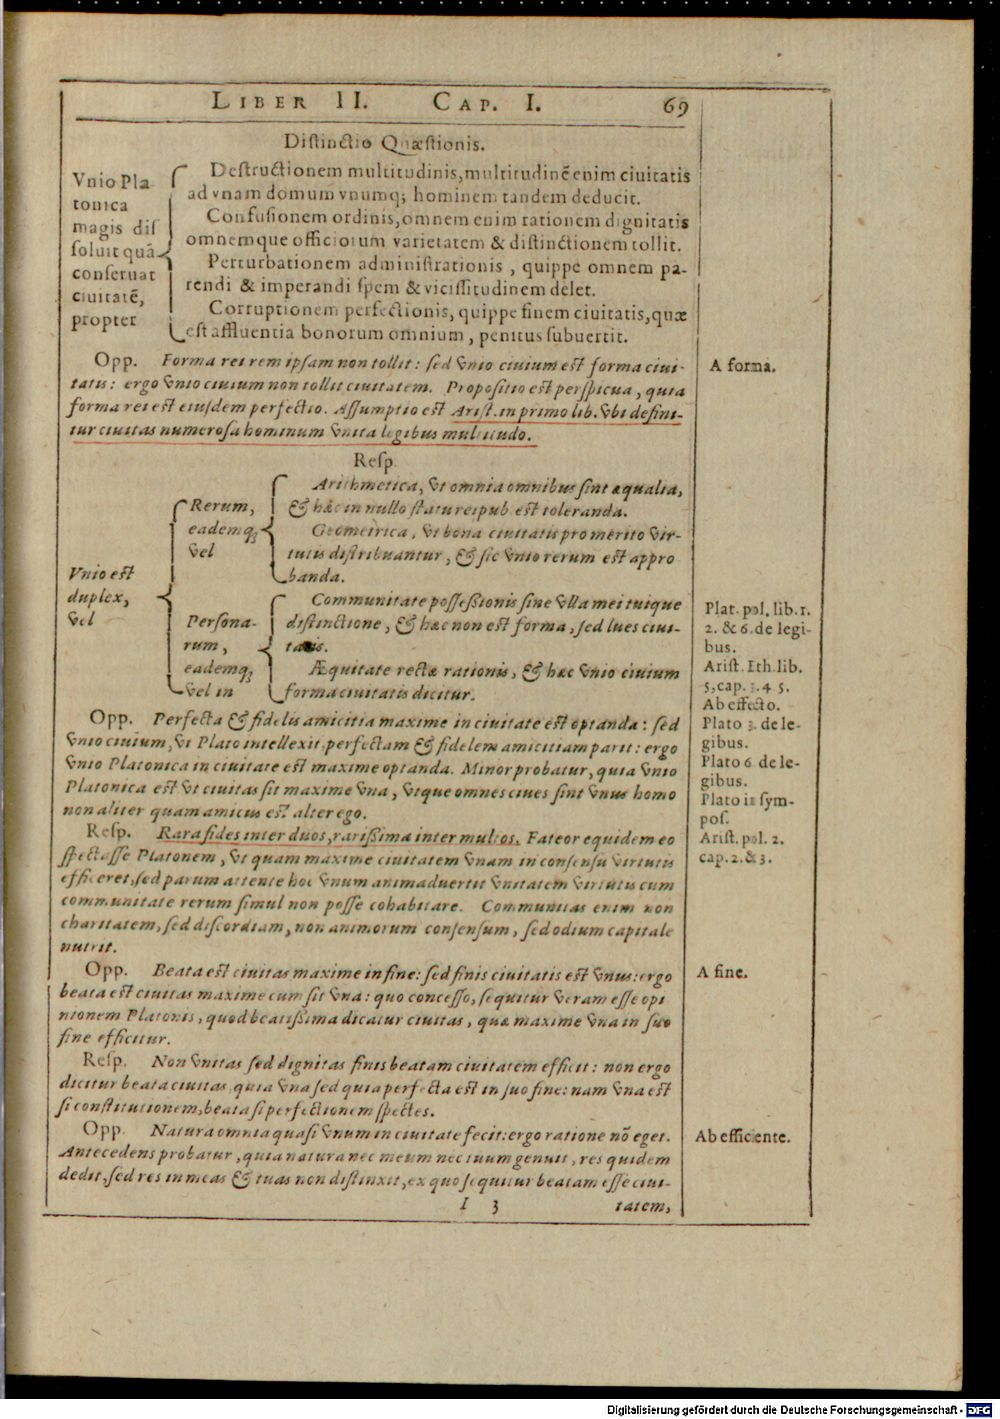 LIBER II. CAP. I. 69
Distinctio Quæstionis.
Vnio Pla
tonica
magis dis
soluit quã
conseruat
ciuitatẽ,
propter
Destructionem multitudinis, multitudinẽ enim ciuitatis
ad vnam domum vnumq; hominem tandem deducit.
Confusionem ordinis, omnem enim rationem dignitatis
omnemque officiorum varietatem & distinctionem tollit.
Perturbationem administrationis, quippe omnem pa-
rendi & imperandi spem & vicissitudinem delet.
Corruptionem perfectionis, quippe finem ciuitatis, quæ
est affluentia bonorum omnium, penitus subuertit.
Opp. Forma rei rem ipsam non tollit: sed vnio ciuium est forma ciui-
tatis: ergo vnio ciuium non tollit ciuitatem. Propositio est perspicua, quia
forma rei est eiusdem perfectio. Assumptio est Arist. in primo lib. vbi defini-
tur ciuitas numerosa hominum vnita legibus multitudo.
A forma.
Resp.
Vnio est
duplex,
vel
Rerum,
eademq;
vel
Arithmetica, vt omnia omnibus sint æqualia,
& hæc in nullo statu reipub est toleranda.
Geometrica, vt bona ciuitatis pro merito vir-
tutis distribuantur, & sic vnio rerum est appro
banda.
Persona-
rum,
eademq;
vel in
Communitate possessionis sine vlla mei tuique
distinctione, & hæc non est forma, sed lues ciui-
tatis.
Æquitate rectæ rationis, & hæc vnio ciuium
forma ciuitatis dicitur.
Plat. pol. lib. 1.
2. & 6. de legi-
bus.
Arist. Eth. lib.
5, cap. 3. 4 5.
Ab effecto.
Plato 3. de le-
gibus.
Plato 6 de le-
gibus.
Plato in sym-
pos.
Arist. pol. 2.
cap. 2. & 3.
Opp. Perfecta & fidelis amicitia maxime in ciuitate est optanda: sed
vnio ciuium, vt Plato intellexit, perfectam & fidelem amicitiam parit: ergo
vnio Platonica in ciuitate est maxime optanda. Minor probatur, quia vnio
Platonica est vt ciuitas sit maxime vna, vtque omnes ciues sint vnus homo
non aliter quam amicus est alter ego.
Resp. Rara fides inter duos, rarissima inter multos. Fateor equidem eo
spectasse Platonem, vt quam maxime ciuitatem vnam in consensu virtutis
efficeret, sed parum attente hoc vnum animaduertit vnitatem virtutis cum
communitate rerum simul non posse cohabitare. Communitas enim non
charitatem, sed discordiam, non animorum consensum, sed odium capitale
nutrit.
Opp. Beata est ciuitas maxime in fine: sed finis ciuitatis est vnus: ergo
beata est ciuitas maxime cum sit vna: quo concesso, sequitur veram esse opi
nionem Platonis, quod beatissima dicatur ciuitas, quæ maxime vna in suo
fine efficitur.
A fine.
Resp. Non vnitas sed dignitas finis beatam ciuitatem efficit: non ergo
dicitur beata ciuitas quia vna sed quia perfecta est in suo fine: nam vna est
si constitutionem, beata si perfectionem spectes.
Opp. Natura omnia quasi vnum in ciuitate fecit: ergo ratione nõ eget.
Antecedens probatur, quia natura nec meum nec tuum genuit, res quidem
dedit, sed res in meas & tuas non distinxit, ex quo sequitur beatam esse ciui-
Ab efficiente.
I 3 tatem,
Digitalisierung gefördert durch die Deutsche Forschungsgemeinschaft - DFG